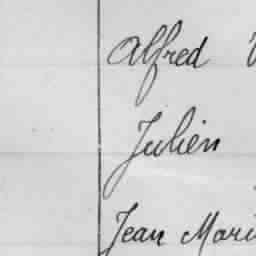 Alfred
Julien
Jean